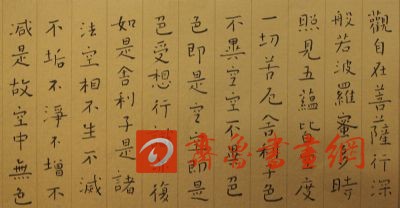 觀自在菩薩行深
般若波羅蜜多時
照見五蘊皆空度
一切苦厄舍利子色
不異空空不異色
色即是空空即是
色受想行復
如是舍利子是諸
法空相不生不滅
不垢不淨不增不
減是故空中無色
齊魯書畫網